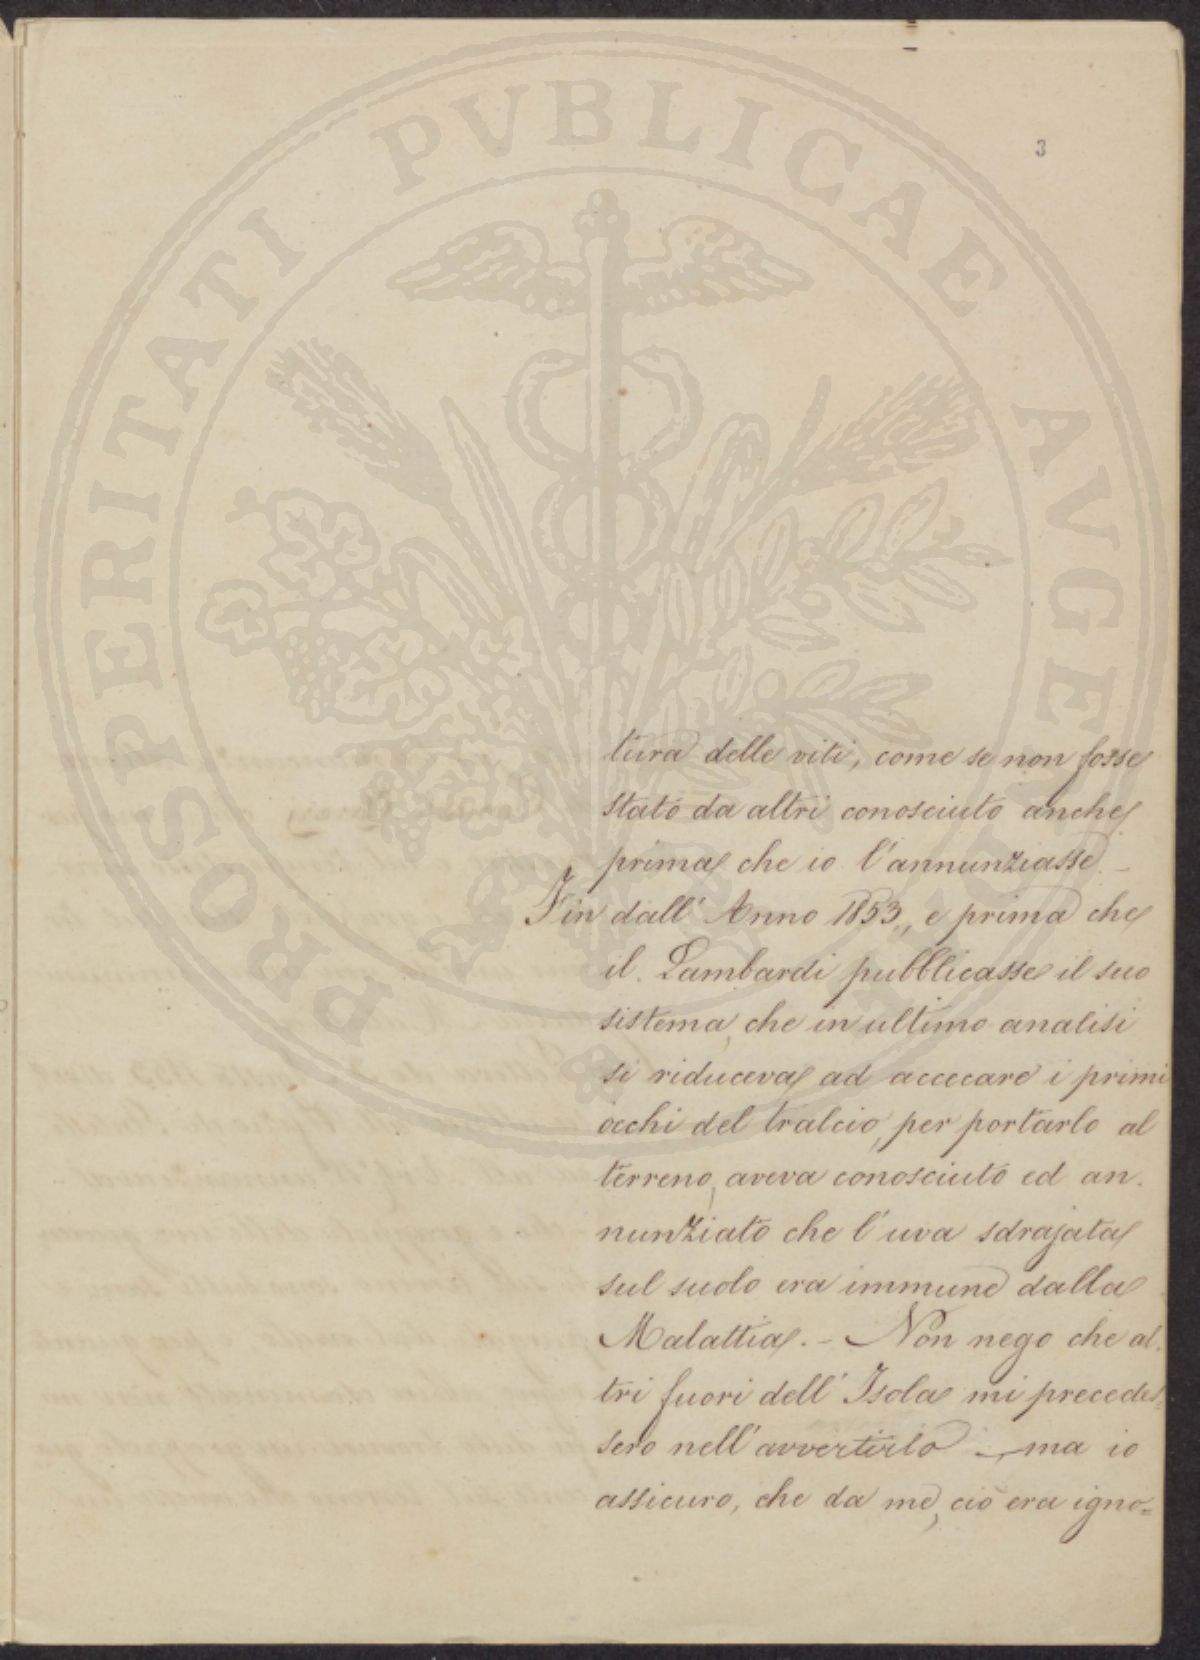 PROSPERITATI PUBLICAE AUGE
3
tura delle viti, come se non fosse
stato da altri conosciuto anche
prima che io l'annunziasse. –
Fin dall' Anno 1853,, e prima che
il Lambardi pubblicasse il suo
sistema, che in ultimo analisi
si riduceva ad accecare i primi
occhi del tralcio, per portarlo al
terreno, aveva conosciuto ed an-
nunziato che l'uva sdrajata
sul suolo era immune dalla
Malattia. – Non nego che al-
tri fuori dell' Isola mi precedes=
sero nell'avvertirlo – ma io
assicuro, che da me, ciò era igno=